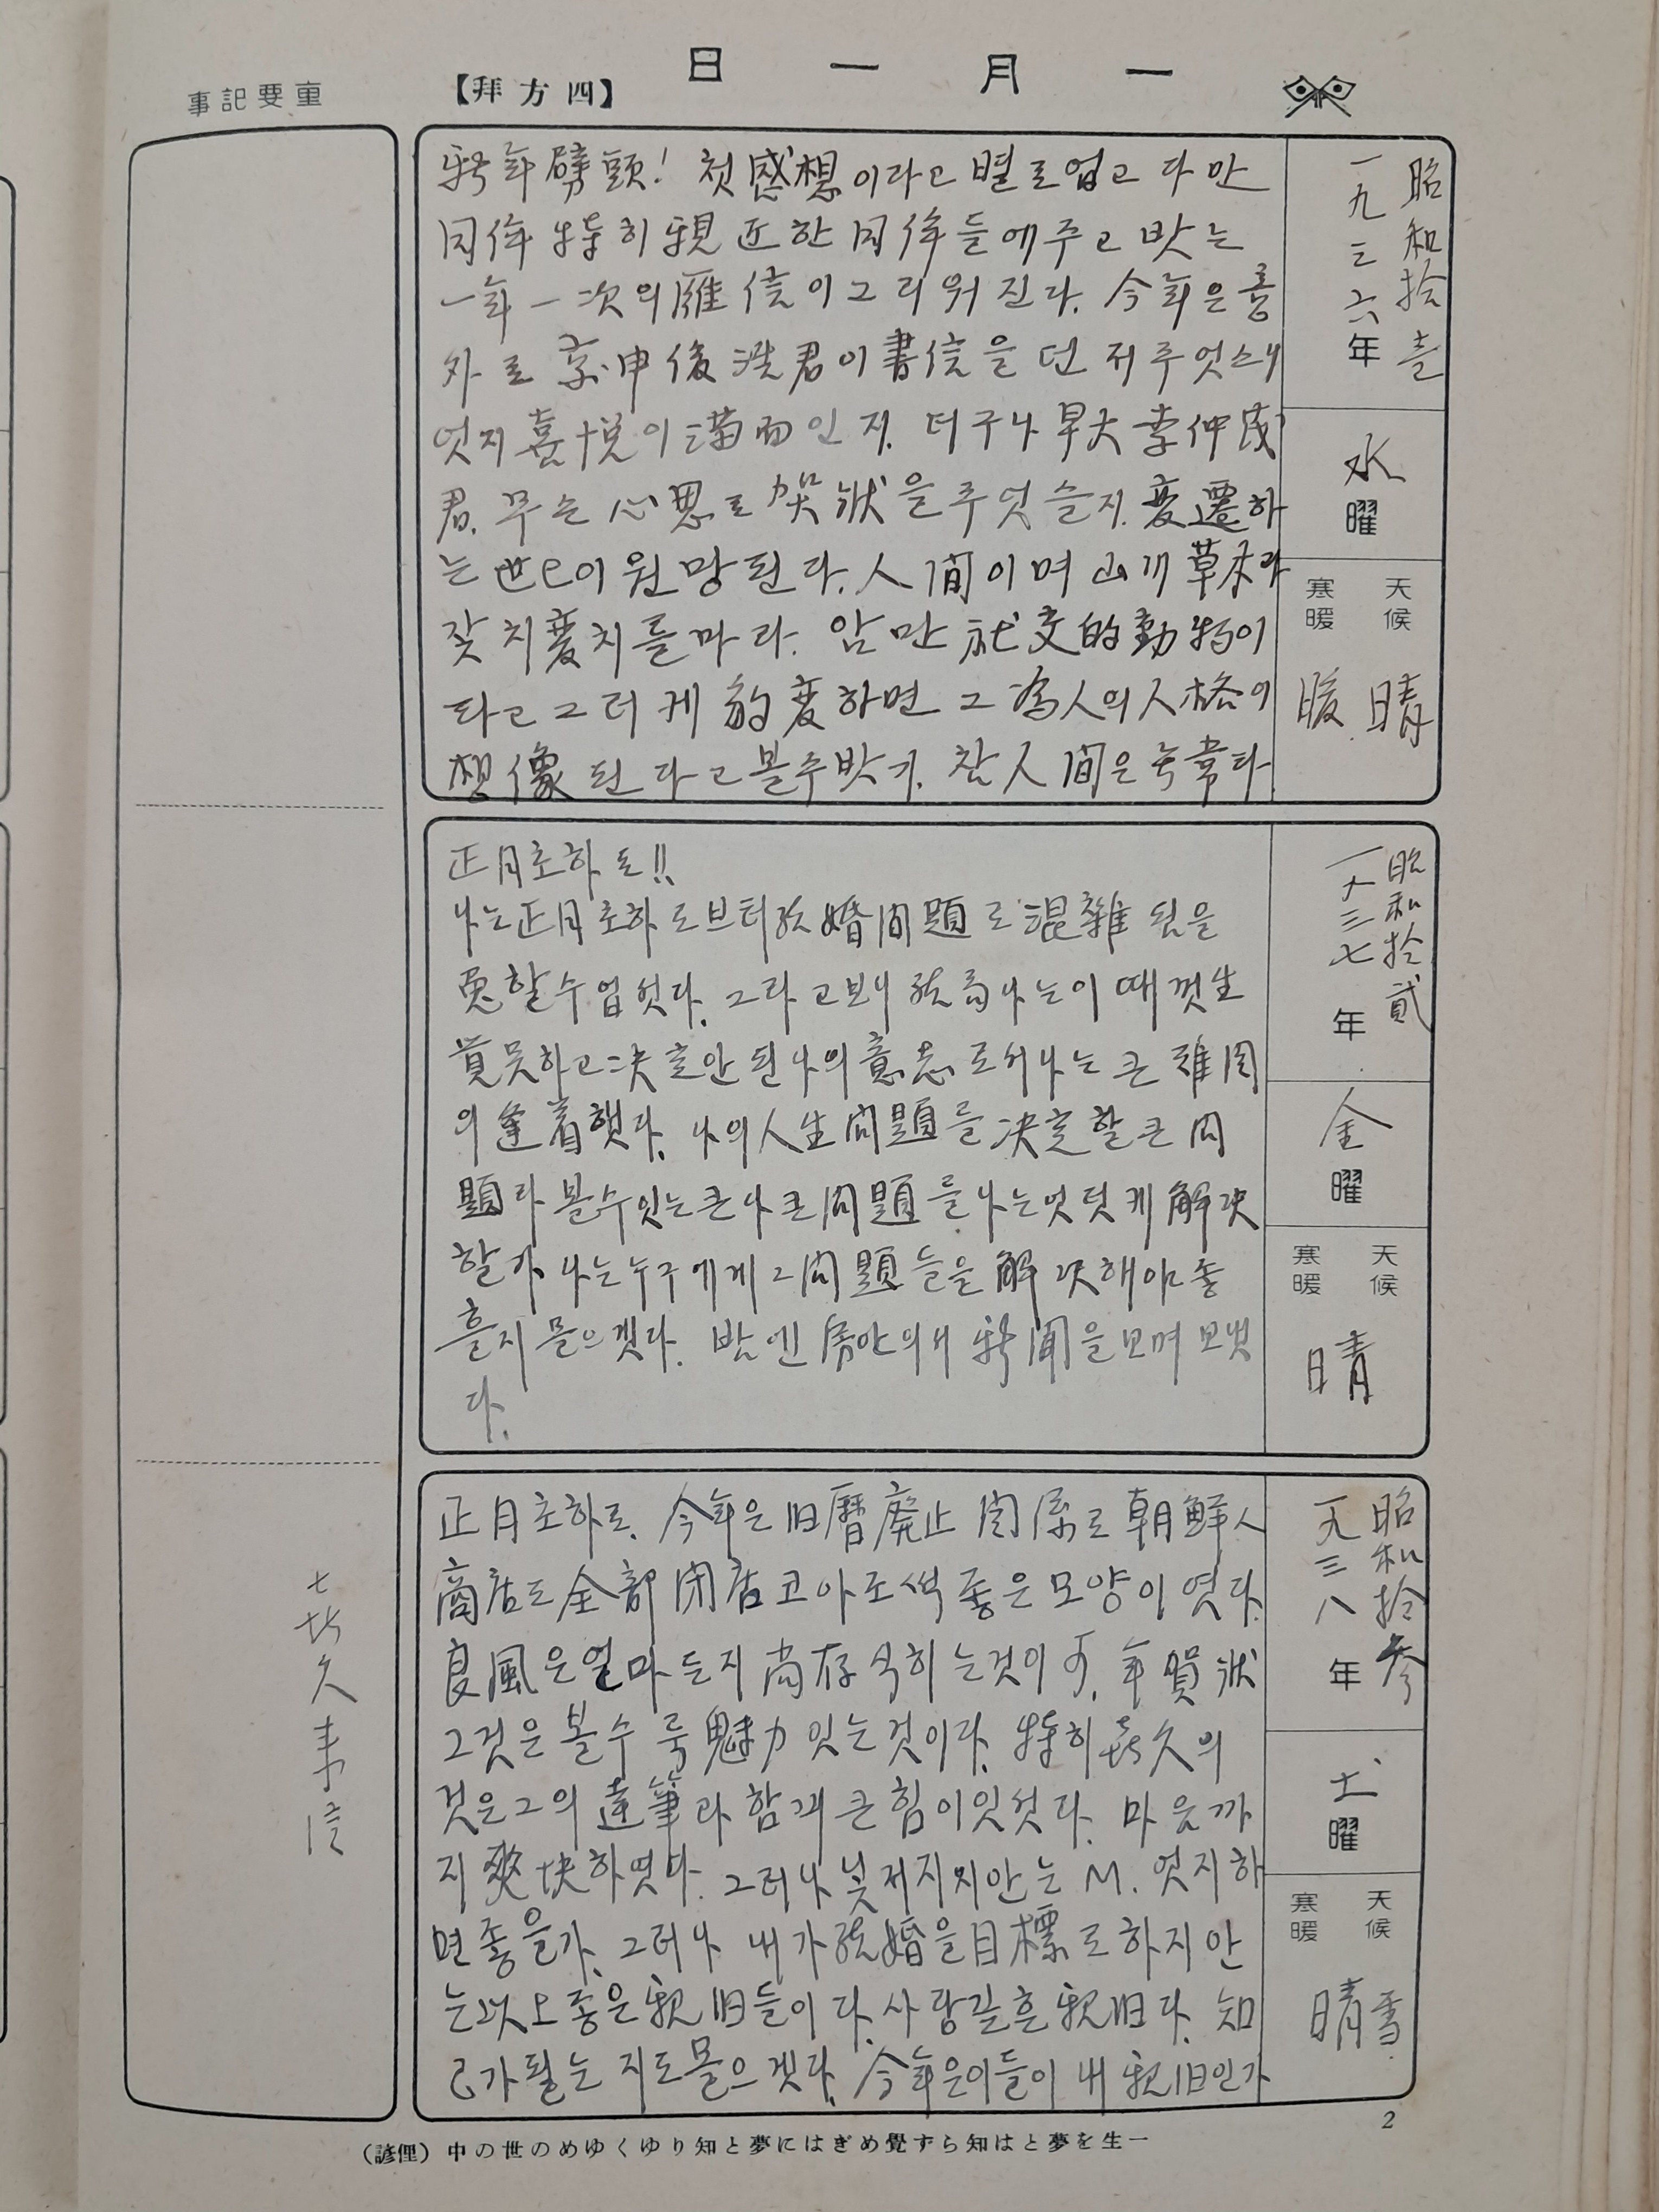 日一月一
【拜方四】
事記要重
昭和拾壱
一九三六年
水曜
天候
寒暖
晴
暖
新年劈頭! 첫感想이라고 별로업고 다만
同侔 特히 親近한 同侔들에주고 밧는
一年一次의 雁信이그리워진다. 今年은意
外로 京·申俊浩君이書信을 던저주엇스니
엇지喜悅이滿面인지. 더구나 早大 李仲成
君. 무슨 心思로 賀狀을주엇슬지. 変遷하
는 世已이 원망된다. 人間이며 山川草木과
갗치変치를마라. 암만 社交的動物이
라고 그러케 豹変하면 그 為人의人格이
想像된다고볼수밧게. 참人間은무常타.
昭和拾貳
一九三七年
金曜
天候
寒暖
晴
正月초하로!!
나는正月초하로브터 結婚問題로 混雜됨을
免할수업섯다. 그라고보니 結局나는이때껏生
覚못하고 決定안된나의意志로서나는 큰 難関
의逢着햇다. 나의人生問題를決定할큰問
題라 볼수잇는큰나큰問題를나는엇덧케解決
할가. 나는누구에게그問題들을解決해야조흘
흘지 몰으겟다. 밤엔 房안의서 新聞을보며 보냇
다.
昭和拾參
一九三八年
土曜
天候
寒暖
雪
晴
正月초하로. 今年은旧曆廢止 関係로朝鮮人
商店도全部閉店코아조썩좋은모양이엿다.
良風은얼마든지 尚存식히는것이可. 年賀狀
그것은볼수룩魅力잇는것이다. 特히喜久의
것은그의達筆과함께큰힘이잇섯다. 마음까
지 爽快하엿다. 그러나 닛저지지안는 M. 엇지하
면좋을가. 그러나 내가結婚을目標로하지안
는以上좋은親旧들이다. 사랑길흔親旧다. 知
己가될는지도몰으겟다. 今年은이들이 내親旧인가
七喜久来信
2
(諺俚) 中の世のめゆくゆり知と夢にはぎめ覺らず知はと夢を生一